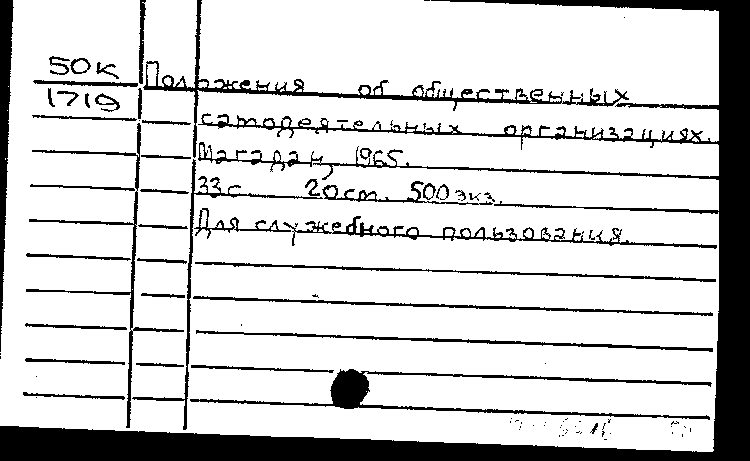 50К
1719
Положения об общественных
самодеятельных организациях.
Магадан, 1965.
33с. 20см. 500 экз.
Для служебного пользования.